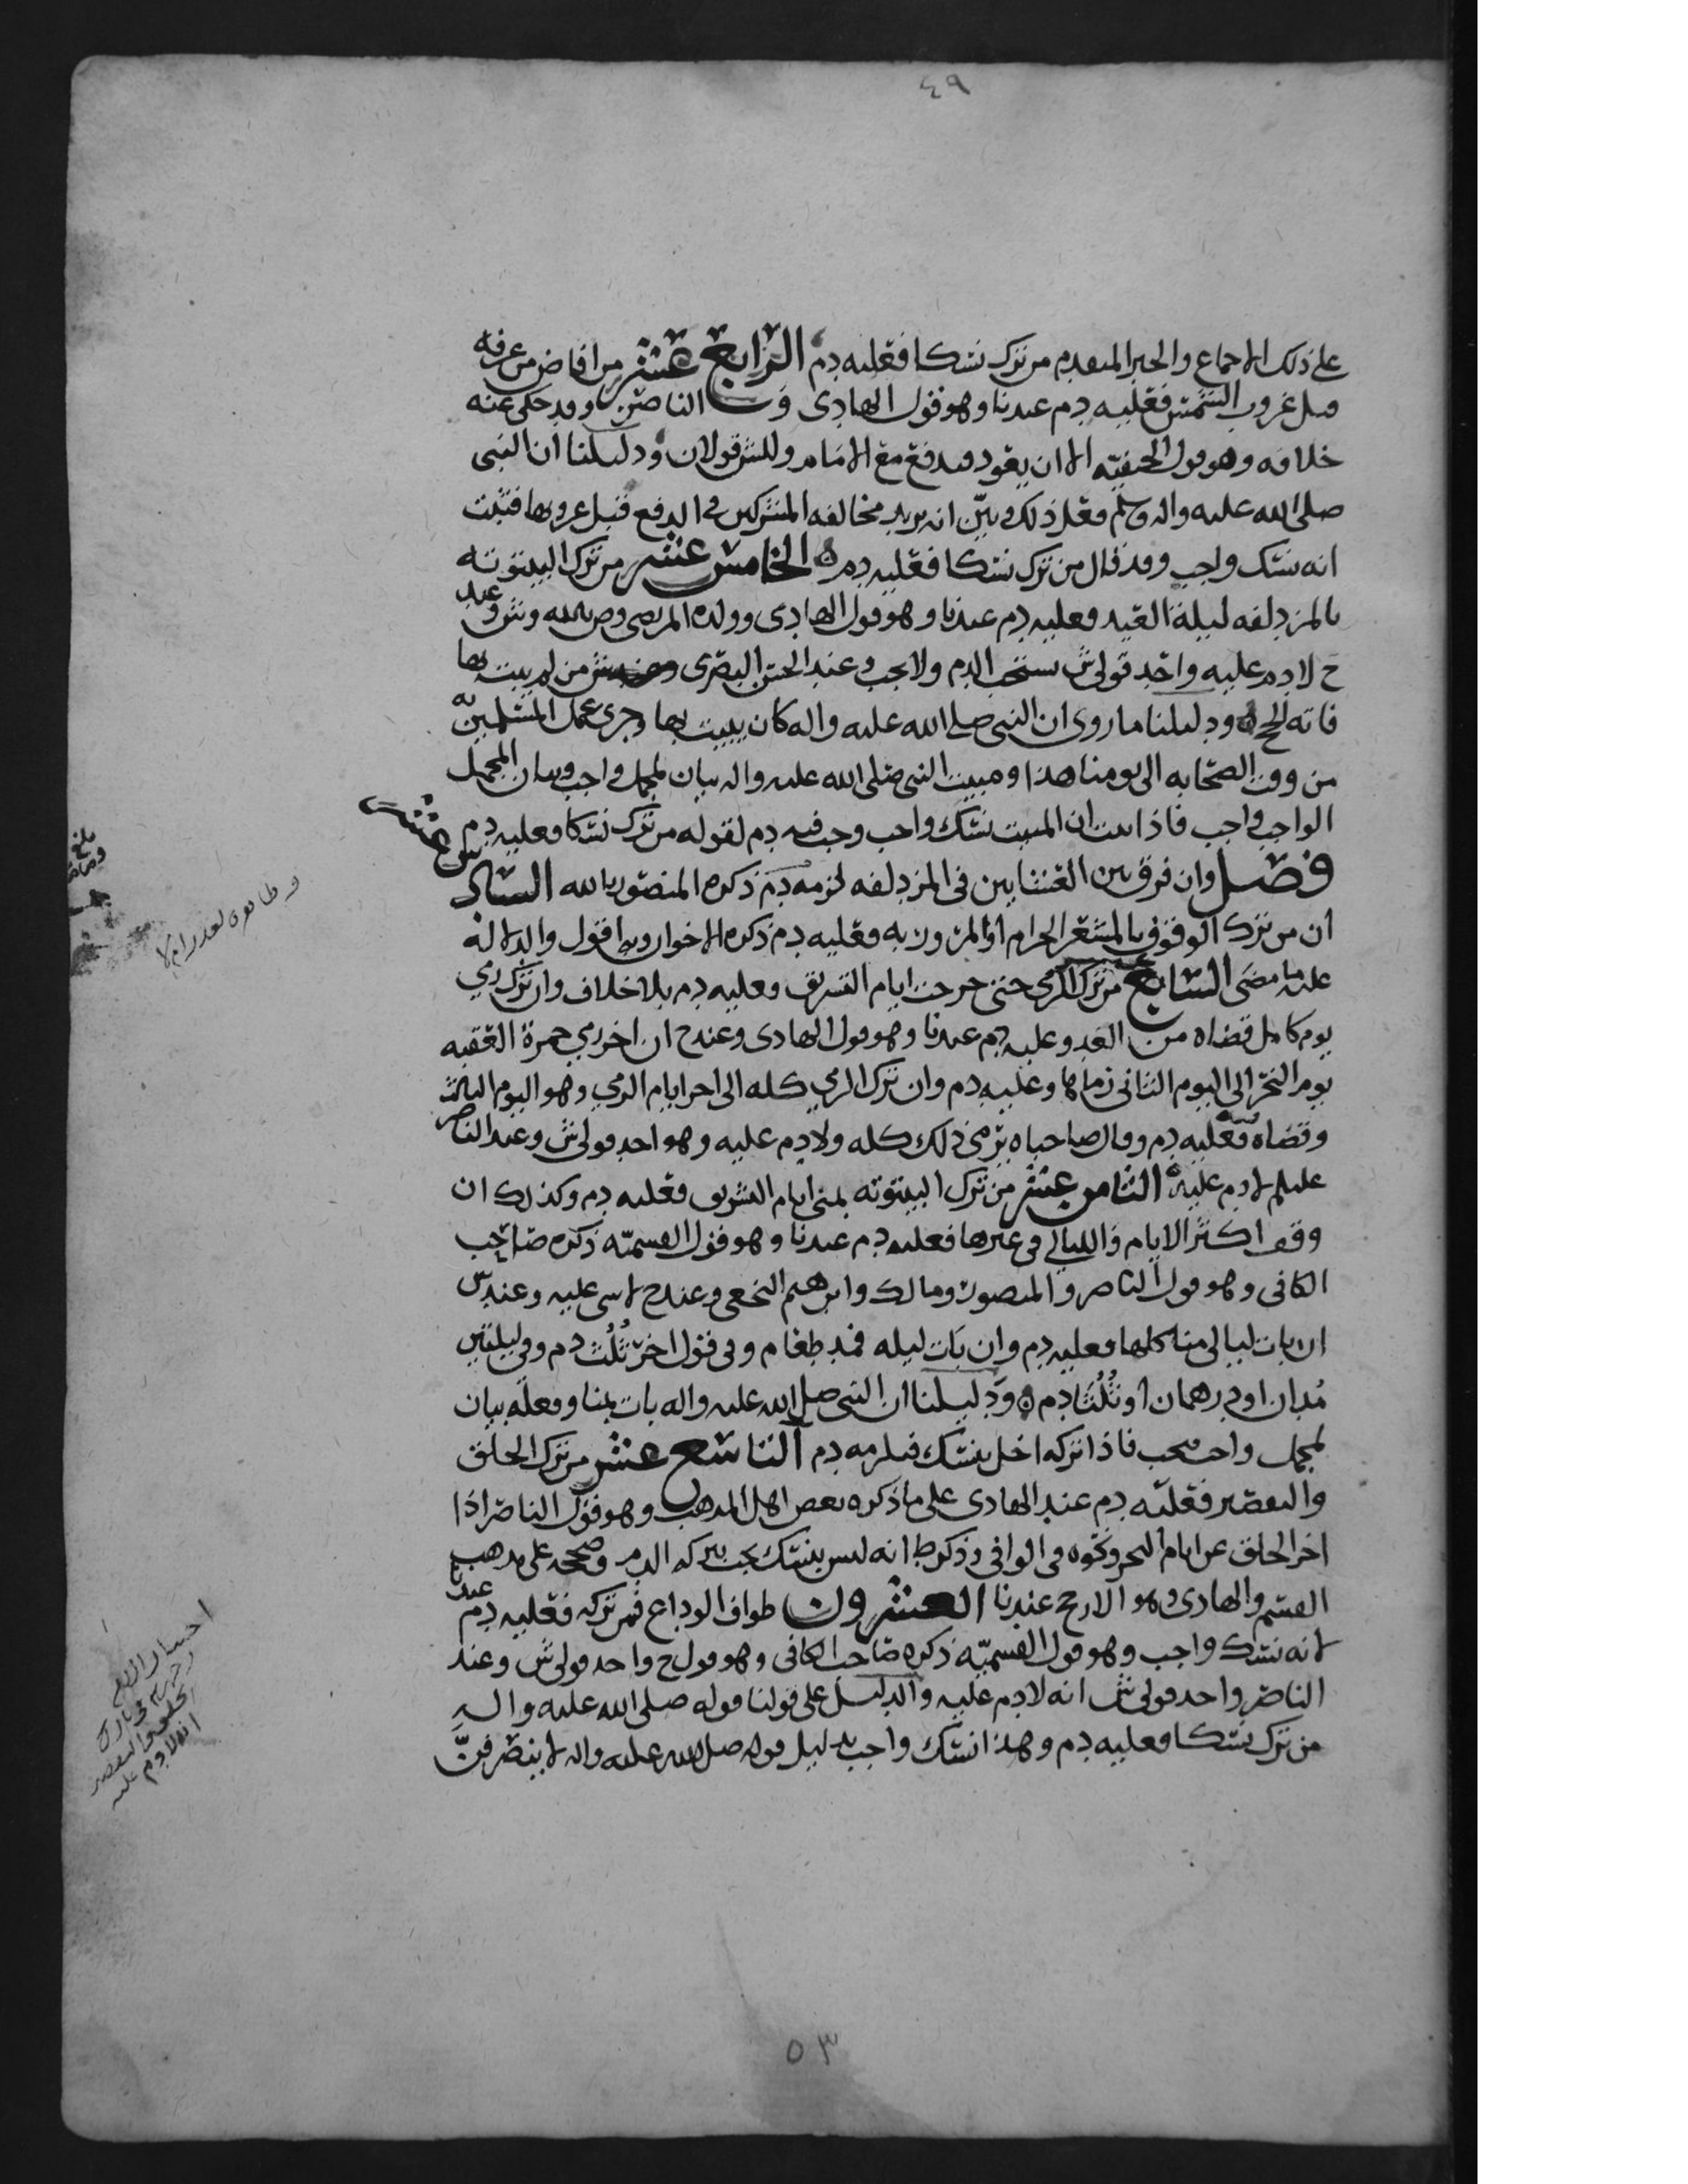 ٤٩
على ذلك الاجماع والخبر المتقدم من ترك نسكا فعليه دم الرابع عشر من افاض من عرفه
قبل غروب الشمس فعليه دم عندنا وهو قول الهادي و الناصر وقد حكى عنه
خلافه وهو قول الحنفيه الا ان يعود فيدفع مع الامام وللش قولان ودليلنا ان النبي
صلى الله عليه واله وسلم فعل ذلك وبيّن انه يريد مخالفه المشركين في الدفع قبل غروبها فثبت
انه نسك واجب وقد قال من ترك نسكا فعليه دم ه الخامس عشر من ترك البيتوته
بالمزدلفه ليلة العيد فعليه دم عندنا وهو قول الهادي وولده المرتضى وص بالله وش وعند
ح لا دم عليه واحد قولي ش يستحب الدم ولا يجب وعند الحسن البصري من لم يبت بها
فاته الحج ه ودليلنا ما روي ان النبي صلى الله عليه واله كان يبيت بها وجرى عمل المسلمين به
من وقت الصحابه الى يومنا هذا ومبيت النبي صلى الله عليه واله بيان لمجمل واجب وبيان المجمل
الواجب واجب فاذا ثبت ان المبيت نسك واجب وجب فيه دم لقوله من ترك نسكا فعليه دم
فصل وان فرق بين العشايين في المزدلفه لزمه دم ذكره المنصور بالله السادس عشر
ان من ترك الوقوف بالمشعر الحرام او المرور به فعليه دم ذكره الاخوان وبه اقول والدلاله
عليه ما مضى السابع عشر من ترك الرمي حتى خرجت ايام التشريق فعليه دم بلا خلاف وان ترك رمي
يوم كامل قضاه من الغد وعليه دم عندنا وهو قول الهادي وعند ح ان اخر رمي جمرة العقبه
يوم النحر الى اليوم الثاني رماها وعليه دم وان ترك الرمي كله الى اخر ايام الرمي وهو اليوم الثالث
وقضاه فعليه دم وقال صاحباه يرمي ذلك كله ولا دم عليه وهو احد قولي ش وعند الناصر
عليلم لا دم عليه ه الثامن عشر من ترك البيتوته بمنى ايام التشريق فعليه دم وكذلك ان
وقف اكثر الايام والليالي في غيرها فعليه دم عندنا وهو قول القسميّه ذكره صاحب
الكافي وهو قول الناصر والمنصور ومالك وابرهيم النخعي وعند ح لا شي عليه وعند ش
ان بات ليالي منا كلها فعليه دم وان بات ليله فمد طعام وفي قول اخر ثُلُث دم وفي ليلتين
مُدان او درهمان او ثُلُثا دم ه ودليلنا ان النبي صلى الله عليه واله بات بمنا وفعله بيان
لمجمل واجب فيجب فاذا تركه اخل بنسك فيلزمه دم التاسع عشر من ترك الحلق
والتقصير فعليه دم عند الهادي على ما ذكره بعض اهل المذهب وهو قول الناصر اذا
اخر الحلق عن ايام النحر ونحوه في الوافي وذكر ط انه ليس بنسك يجب بتركه الدم وصححه على مذهب
القسم والهادي وهو الارجح عندنا العشرون طواف الوداع فمن تركه فعليه دم عندنا
لانه نسك واجب وهو قول القسميّه ذكره صاحب الكافي وهو قول ح واحد قولي ش وعند
الناصر واحد قولي ش انه لا دم عليه والدليل على قولنا قوله صلى الله عليه واله
من ترك نسكا فعليه دم وهذا نسك واجب بدليل قوله صلى الله عليه واله لا ينصرفنَّ
بلغ
٥٣